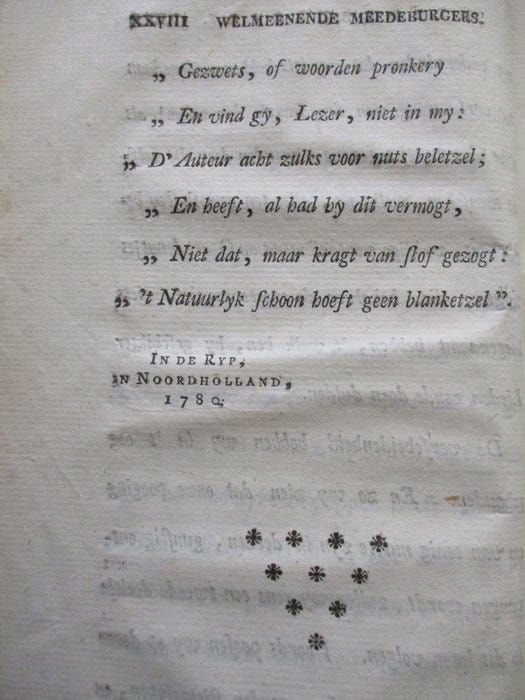 XXVIII WELMEENENDE MEEDEBURGERS.
„ Gezwets, of woorden pronkery
„ En vind gy, Lezer, niet in my:
„ D'Auteur acht zulks voor nuts beletzel;
„ En heeft, al had hy dit vermogt,
„ Niet dat, maar kragt van ſlof gezogt:
„ 't Natuurlyk ſchoon hoeft geen blanketzel ”.
IN DE RYP,
IN NOORDHOLLAND,
1780.